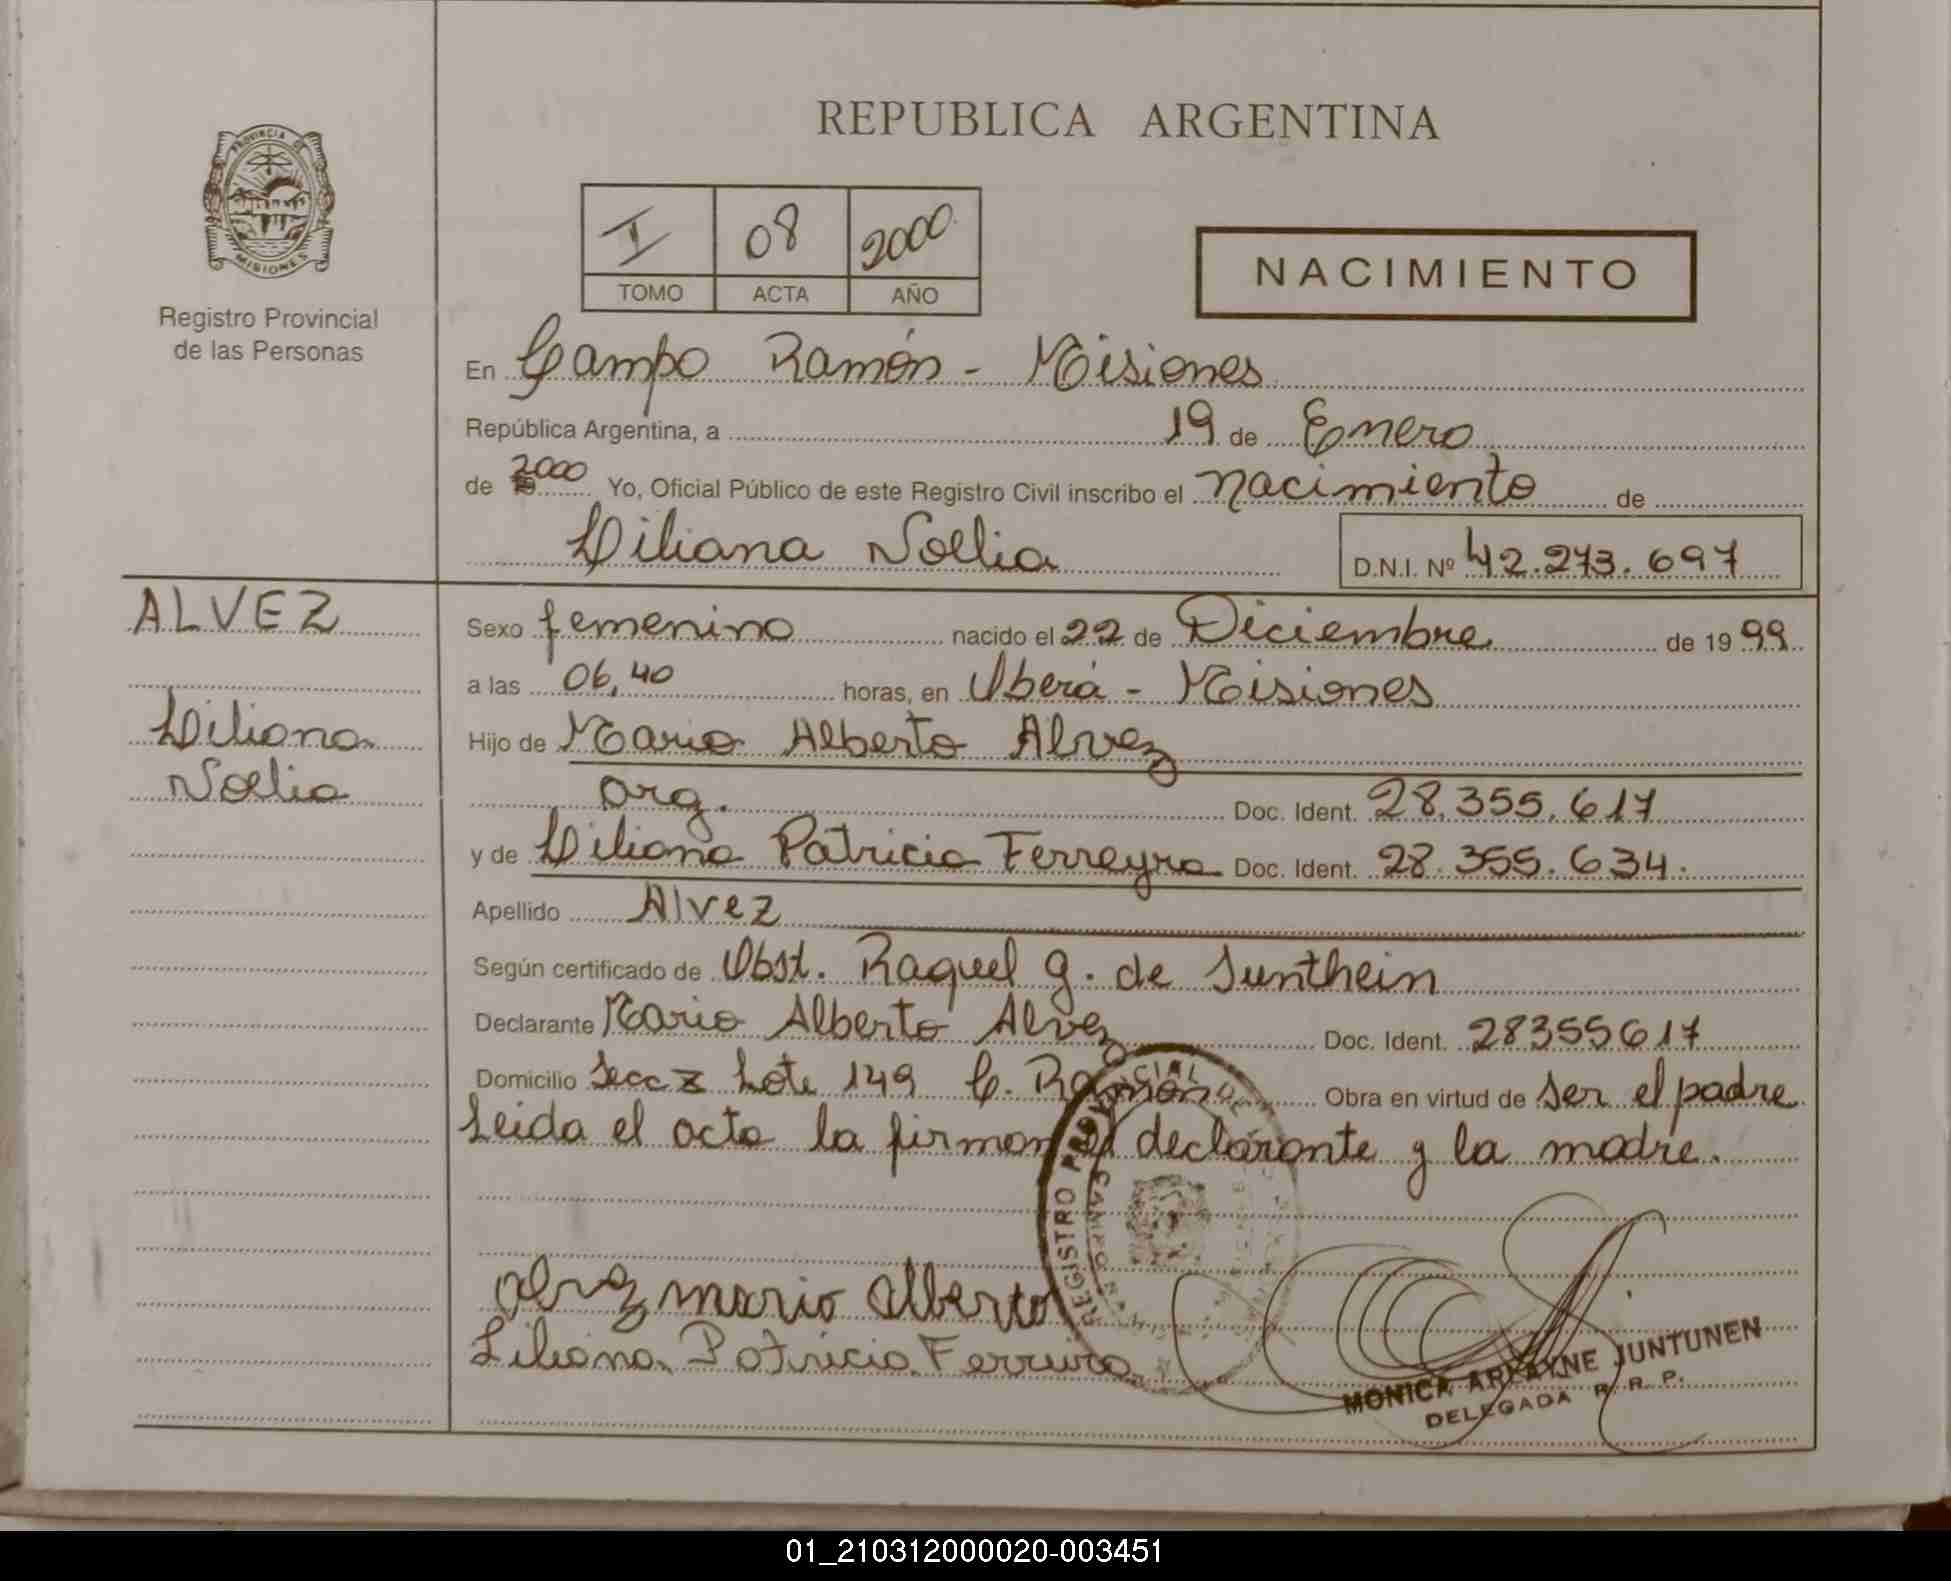 REPUBLICA ARGENTINA
PROVINCIA DE MISIONES
Registro Provincial
de las Personas
I 08 2000
TOMO ACTA AÑO
NACIMIENTO
En Campo Ramón - Misiones
República Argentina, a 19 de Enero
de 2000 Yo, Oficial Público de este Registro Civil inscribo el nacimiento de
Liliana Noelia D.N.I. Nº 42.273.697
ALVEZ
Liliana
Noelia
Sexo femenino nacido el 22 de Diciembre de 19 99
a las 06,40 horas, en Oberá - Misiones
Hijo de Mario Alberto Alvez
arg. Doc. Ident. 28.355.617
y de Liliana Patricia Ferreyra Doc. Ident. 28.355.634.
Apellido Alvez
Según certificado de Obst. Raquel G. de Sunthein
Declarante Mario Alberto Alvez Doc. Ident. 28355617
Domicilio Secc Lote 149 C. Ramón Obra en virtud de ser el padre
Leida el acta la firman el declarante y la madre.
REGISTRO PROVINCIAL DE
Alvez mario alberto
Liliana Patricia Ferreira
MONICA ARLAYNE JUNTUNEN
DELEGADA R. R. P.
01_210312000020-003451